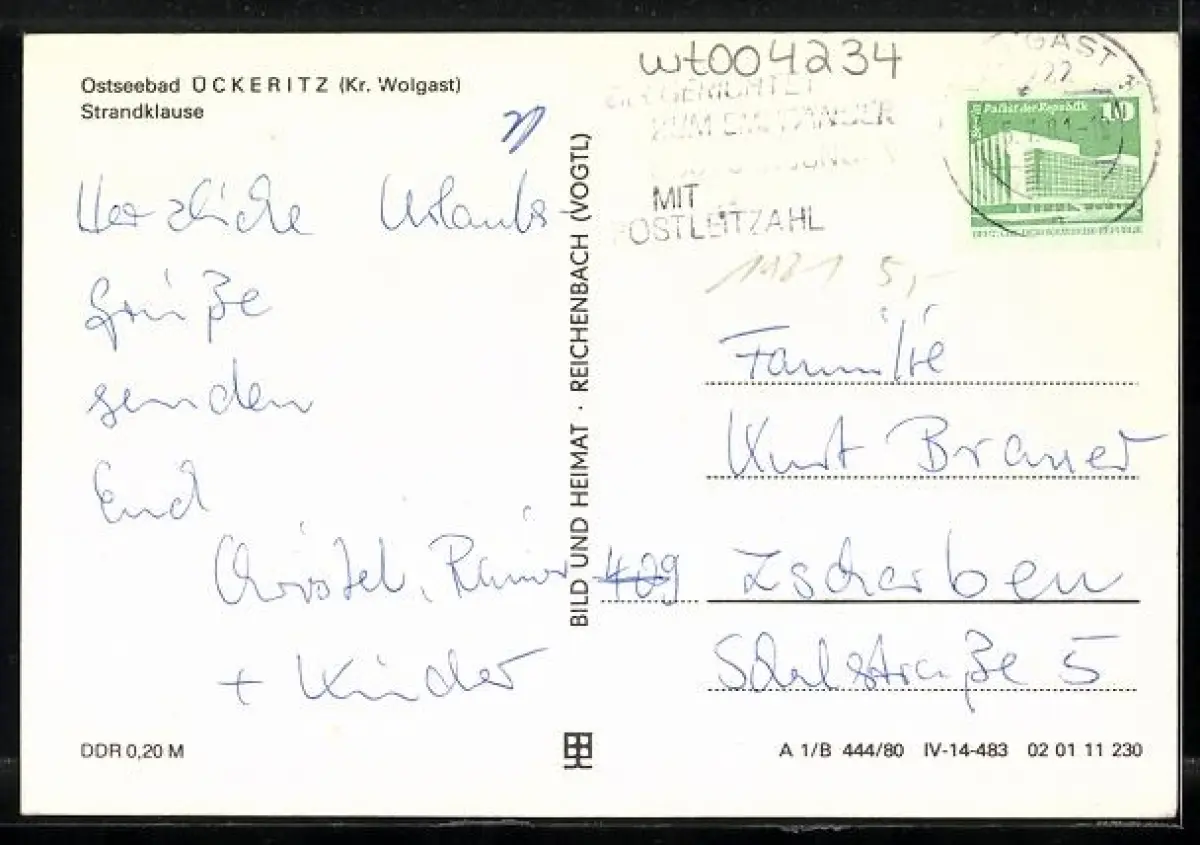 Ostseebad ÜCKERITZ (Kr. Wolgast)
Strandklause
Herzliche Urlaubs
grüße
senden
Euch
Christel, Rainer
+ Kinder
DDR 0,20 M
BILD UND HEIMAT · REICHENBACH (VOGTL)
wt004234
MIT
POSTLEITZAHL
GAST
Palast der Republik 10
1981 5,-
Familie
Kurt Brauer
409 Zscherben
Schulstraße 5
A 1/B 444/80 IV-14-483 02 01 11 230